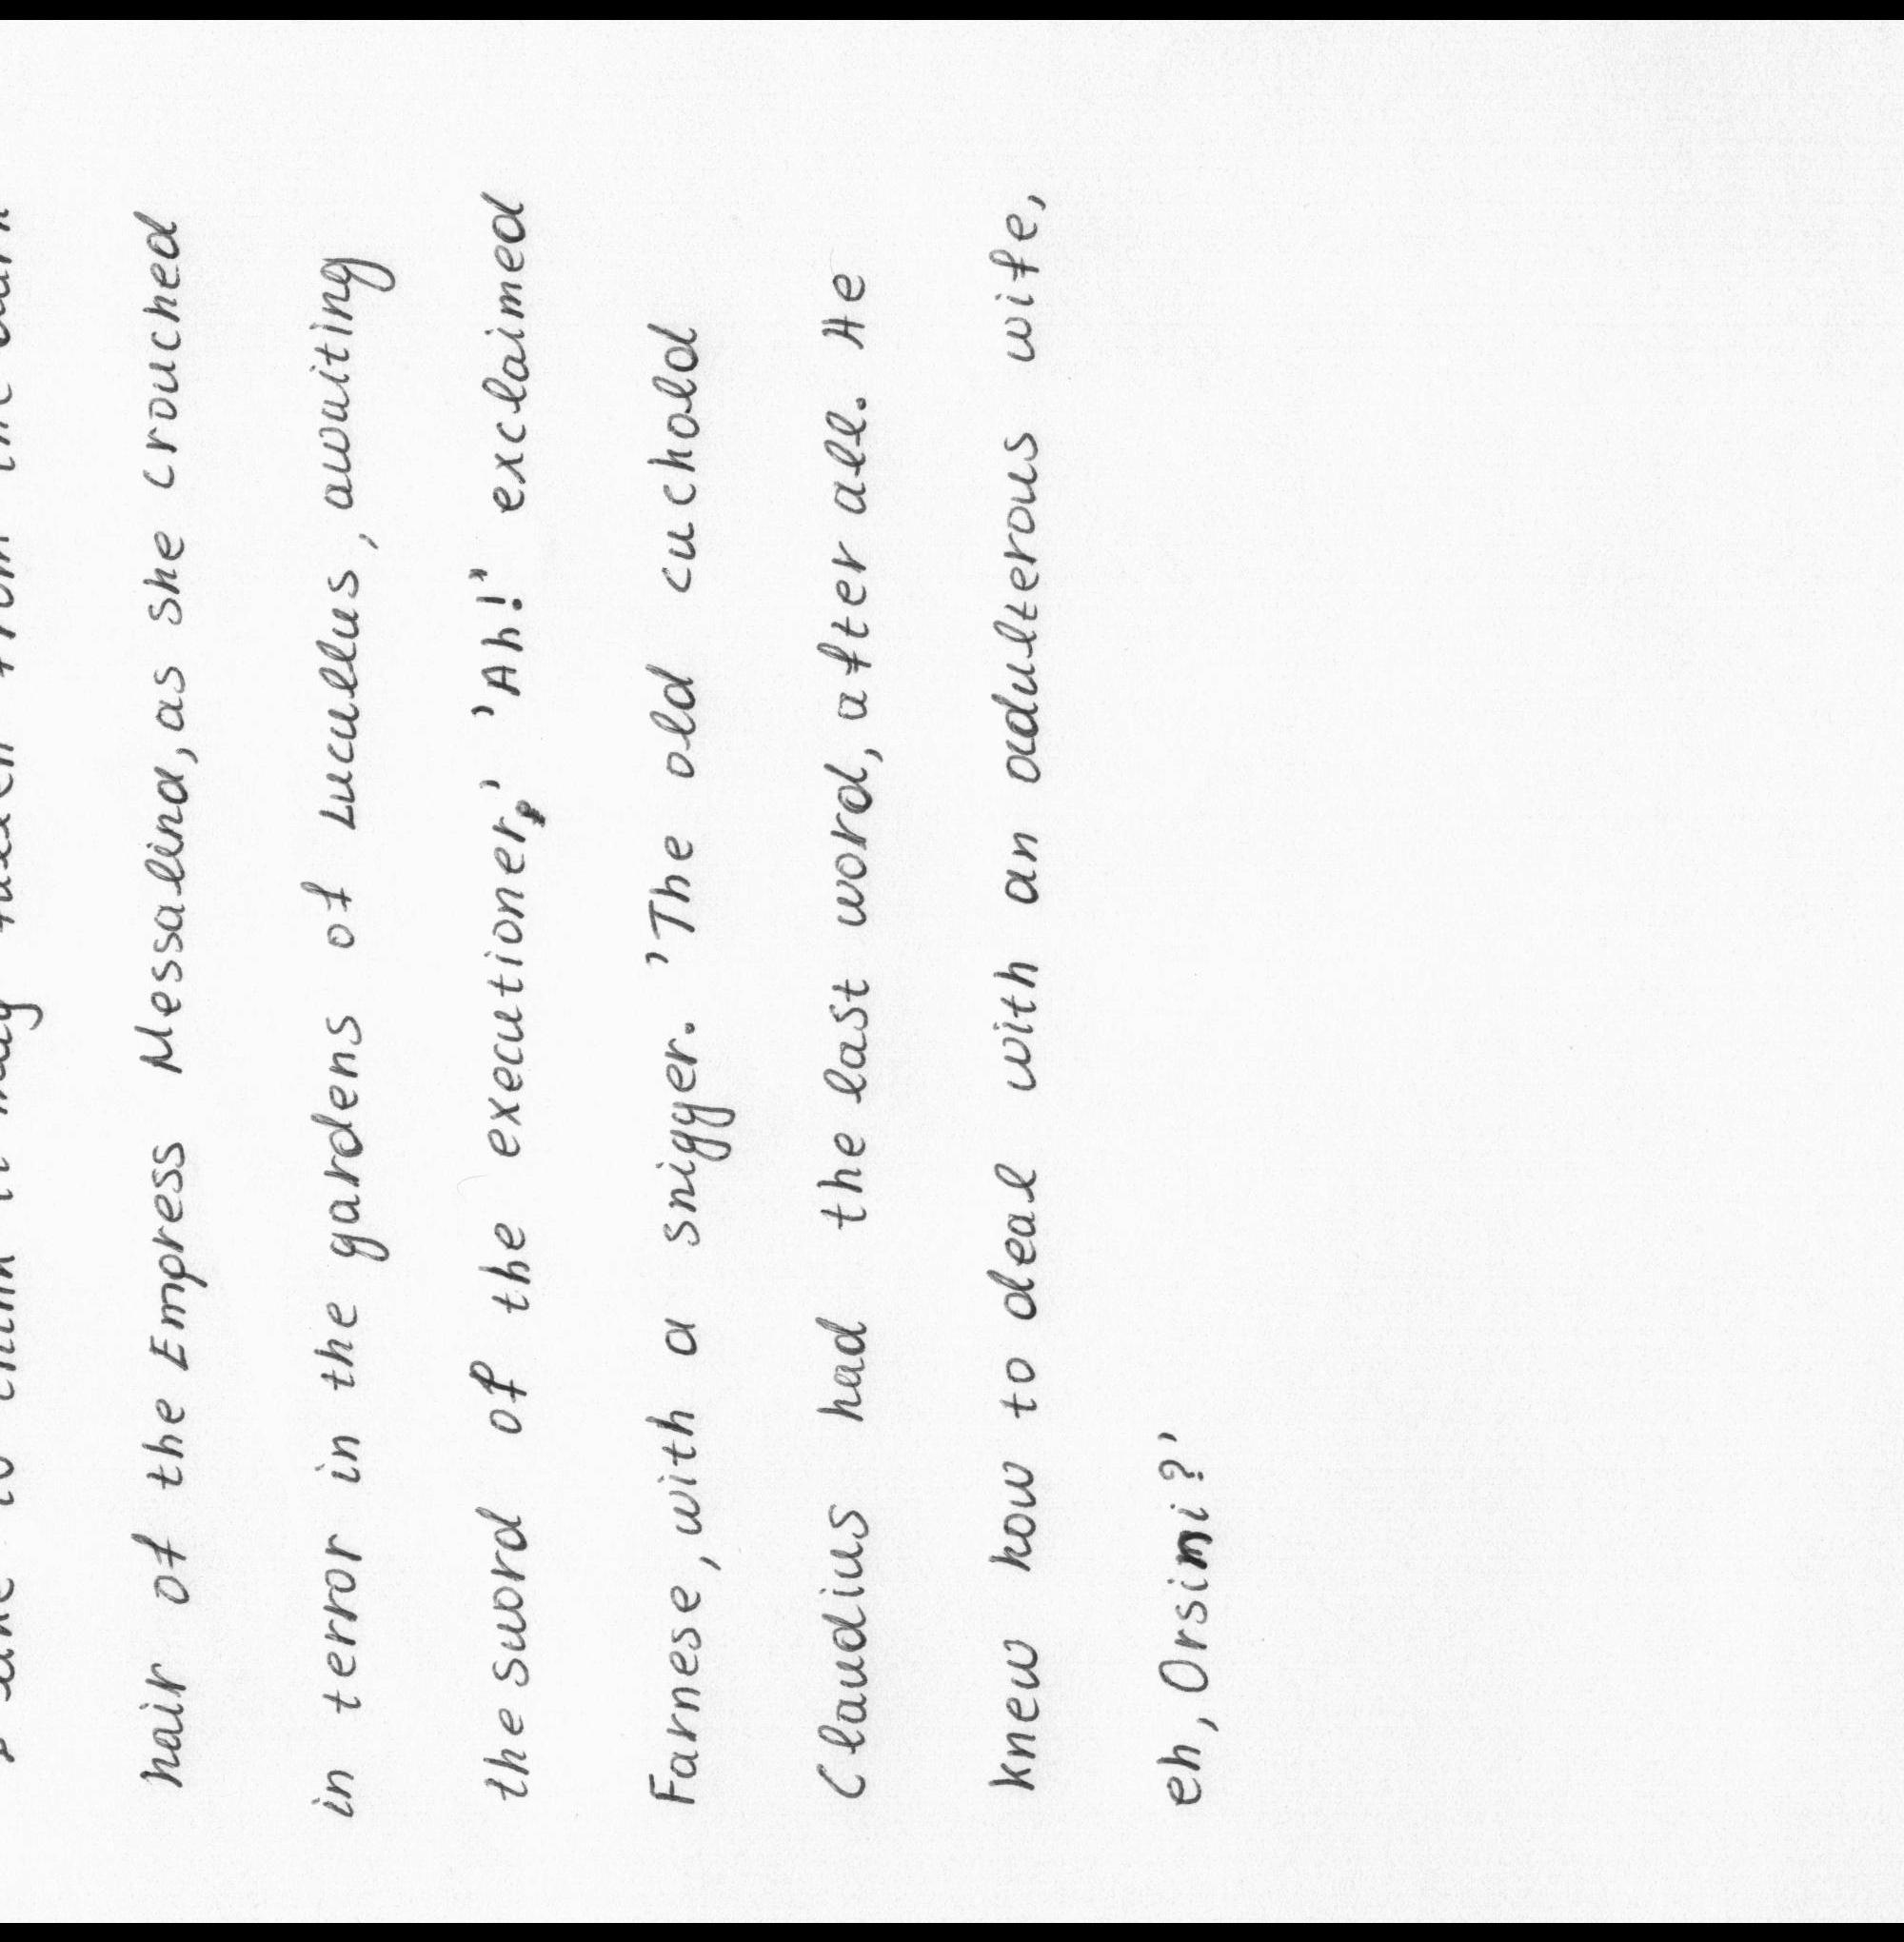 hair of the Empress Messalina, as she crouched
in terror in the gardens of Lucullus, awaiting
the sword of the executioner,' 'Ah!' exclaimed
Farnese, with a snigger. 'The old cuchold
Claudius had the last word, after all. He
knew how to deal with an adulterous wife,
eh, Orsini?'